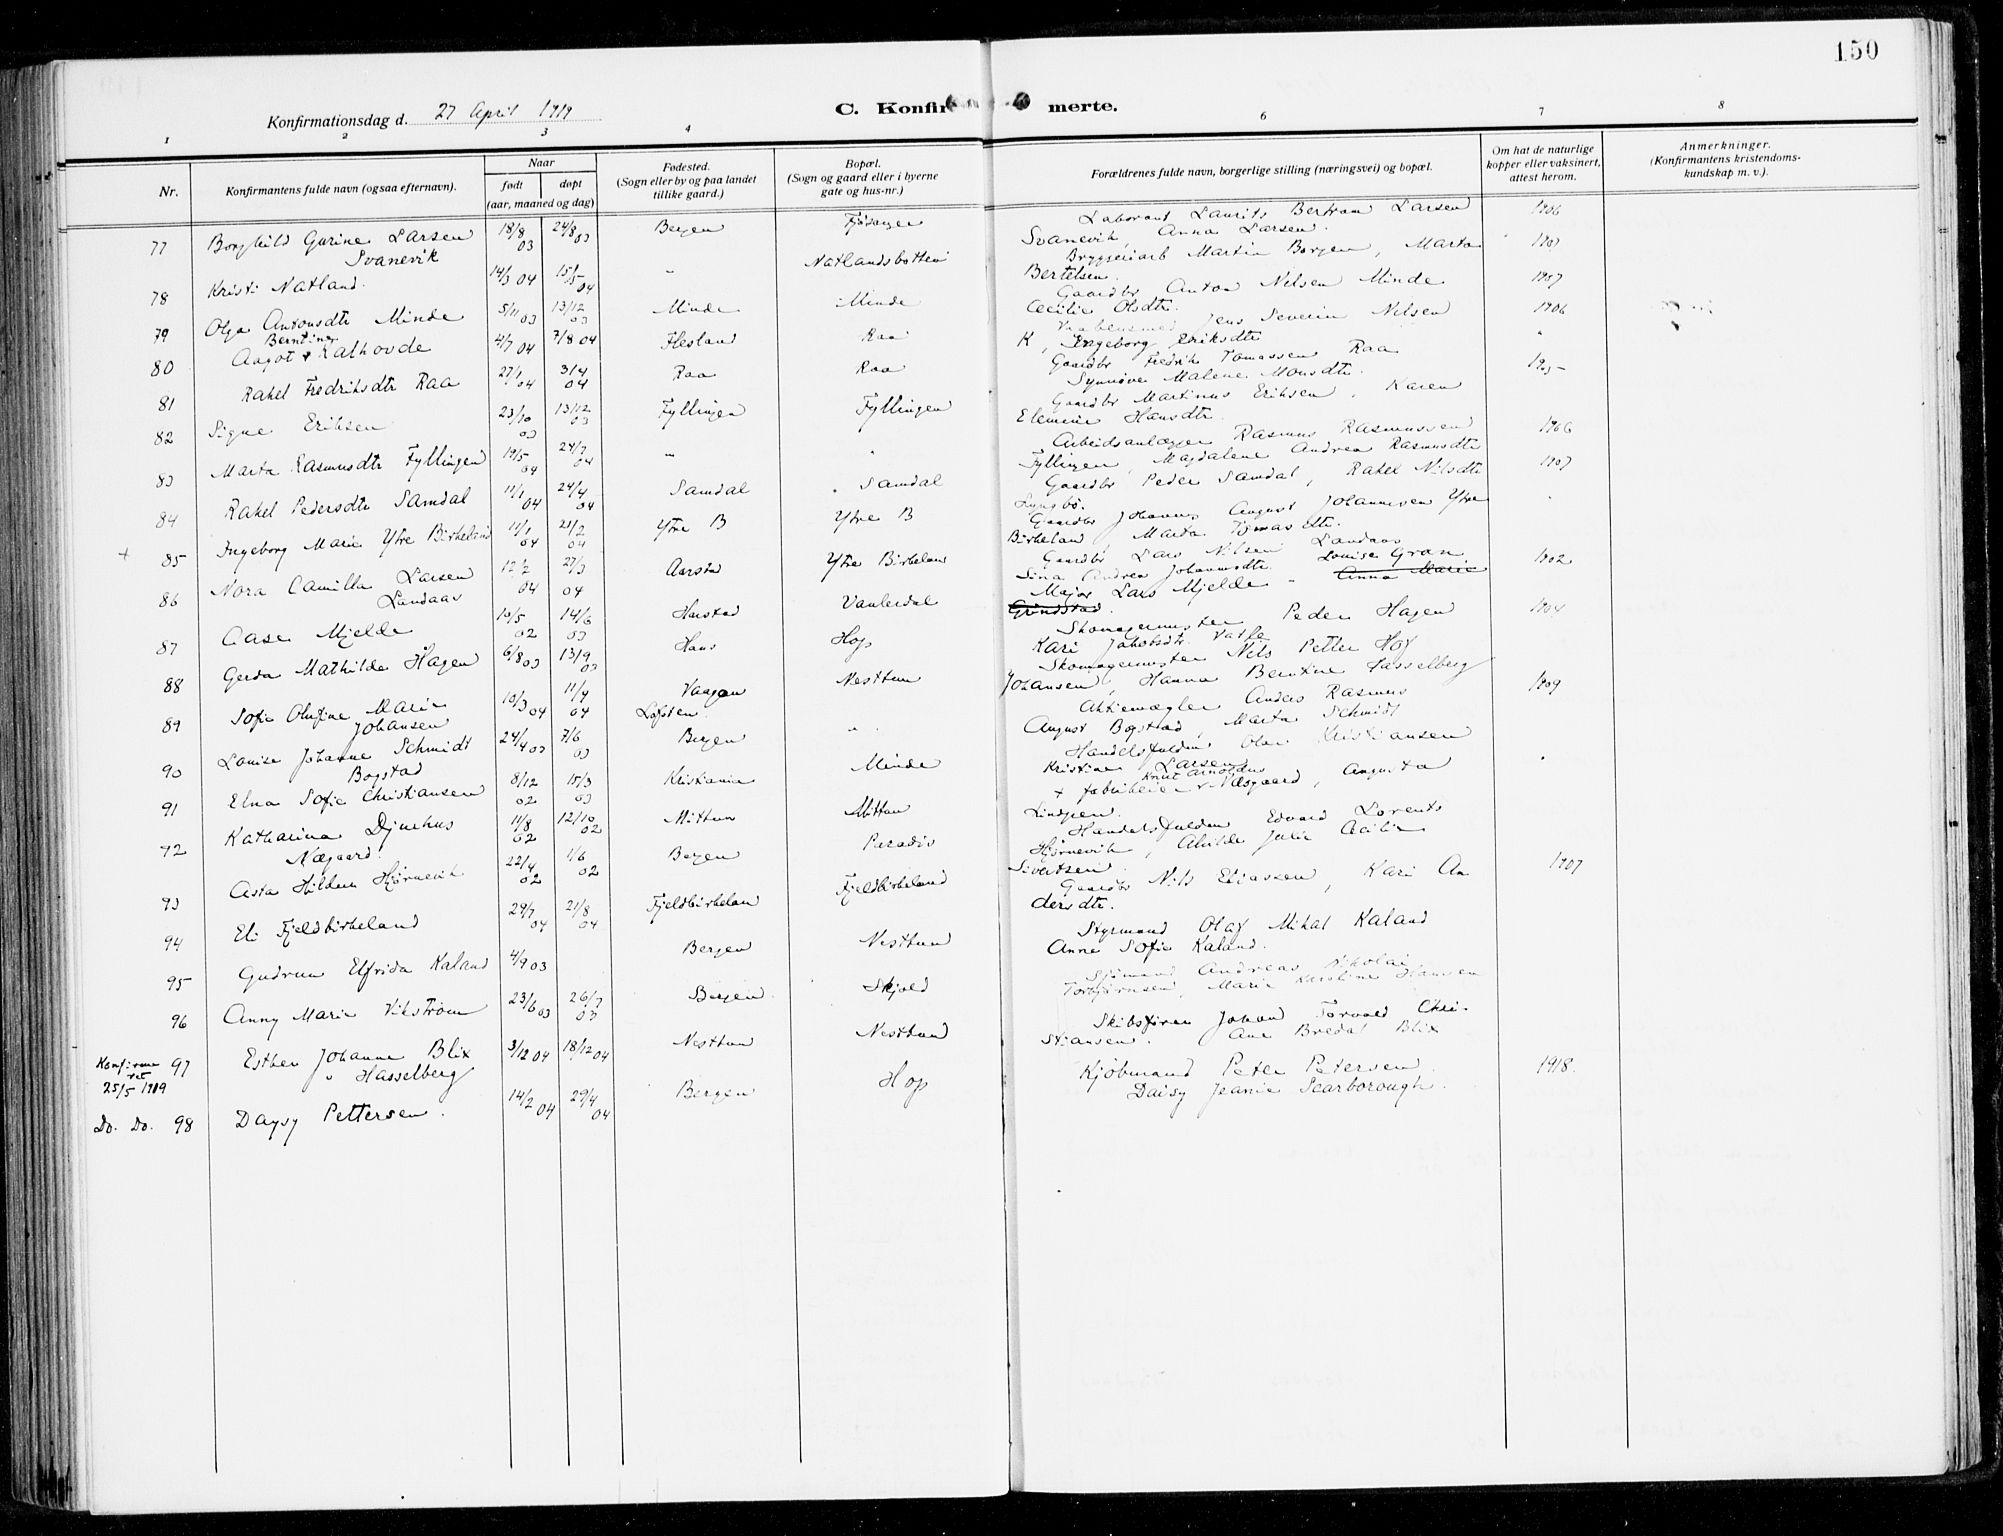 150
Konfirmationsdag d. 27 April 1919
C. Konfir merte.
1 2 3 4 6 7 8
Nr.
Konfirmantens fulde navn (ogsaa efternavn).
Naar
født døpt
(aar, maaned og dag)
Fødested.
(Sogn eller by og paa landet
tillike gaard.)
Bopæl.
(Sogn og gaard eller i byerne
gate og hus-nr.)
Forældrenes fulde navn, borgerlige stilling (næringsvei) og bopæl.
Om hat de naturlige
kopper eller vaksinert,
attest herom.
Anmerkninger.
(Konfirmantens kristendoms-
kundskap m. v.).
77 Borghild Gurine Larsen Svanevik 18/8 03 24/8 03 Bergen Fjøsanger Laborant Laurits Bertram Larsen 1906
Svanevik, Anna Larsen.
78 Kristi Natland. 14/3 04 15/5 04 " Natlandsbotten Bryggeriarb Martin Borgen, Marta
Bertelsen.
79 Olga Antonsdtr Minde 5/11 03 13/12 03 Minde Minde Gaardbr Anton Nelsen Minde 1907
Cecilie Olsdtr.
80 Aagot Berntine Kalhovde 4/7 04 7/8 04 Flesland Raa Jens Severin Nilsen 1906
K, Ingeborg Eriksdtr
81 Rakel Fredriksdtr Raa 27/1 04 3/4 04 Raa Raa Gaardbr Fredrik Tomassen Raa "
Synnøve Malene Monsdtr.
82 Signe Eriksen 23/10 03 13/12 03 Fyllingen Fyllingen Gaardbr Martinus Eriksen, Karen
Elemine Hansdtr.
83 Marta Rasmusdtr Fyllingen 19/5 04 24/7 04 " " Arbeidsanlægger Rasmus Rasmussen 1906
Fyllingen, Magdalene Andrea Rasmusdtr
84 Rakel Pedersdtr Samdal 11/1 04 24/4 04 Samdal Samdal Gaardbr Peder Samdal, Rakel Nilsdtr 1907
Lyngbö.
+ 85 Ingeborg Marie Ytre Birkeland 11/1 04 21/2 04 Ytre B Ytre B Gaardbr Johannes August Johannesen Ytre
Birkeland, Marta Tomasdtr.
86 Nora Camilla Larsen Landaas 12/2 04 27/3 04 Aarstad Ytre Birkeland Gaardbr Lars Nilsen Landaas 1902
Sina Andrea Johannsdtr.
87 Aase Mjelde 10/5 02 14/6 03 Harstad Major Lars Mjelde - Louise Gran
Anna Marie
Grindstad.
88 Gerda Mathilde Hagen 6/8 03 13/9 03 Haus Hop Skomagermester Peder Hagen 1904
Kari Jakobsdtr Vatle
89 Sofie Olufine Marie Johansen 10/3 04 11/4 04 Vaagan Lofoten. Nesttun Skomagermester Nils Petter Hoff
Johansen, Hanna Berntine Hasselberg
90 Louise Johanne Schmidt Bogstad 24/4 03 7/6 03 Bergen " Aktiemægler Anders Rasmus 1909
August Bogstad, Marta Schmidt
91 Elna Sofie Christiansen 8/12 02 15/3 03 Kristiania Minde Handelsfuldm Olai Kristiansen
Kristine Larsen
92 Katharina Djurhus Næsgaard. 11/8 02 12/10 02 Mittun Mittun + fabrikeier Knut Arnoldus Næsgaard, Augusta
Lindgren.
93 Asta Hildur Hjørnevik 22/4 02 1/6 02 Bergen Paradis Handelsfuldm Edvard Lorents
Hjørnevik, Alvilde Julie Cecilie
Sivertsen.
94 Eli Fjeldbirkeland 29/7 04 21/8 04 Fjeldbirkeland Fjeldbirkeland Gaardbr Nils Eliassen, Kari An 1907
dersdtr.
95 Gudrun Elfrida Kaland 4/9 03 Bergen Nesttun Styrmand Olaf Mikal Kaland
Anne Sofie Kaland.
96 Anny Marie Vikstrøm 23/6 03 26/7 03 Bergen Skjold Sjømand Andreas Nikolai
Torbjørnsen, Marie Kristine Hansen
Konfirme
ret
25/5 1919 97 Esther Johanne Blix " Hasselberg 3/12 04 18/12 04 Nesttun Nesttun Skibsfører Johan Torvald Chri-
stiansen. Ane Bredal Blix
Do. Do. 98 Daysy Pettersen. 14/2 04 29/4 04 Bergen Hop Kjøbmand Peter Petersen 1918.
Daisy Jeanie Scarborough.